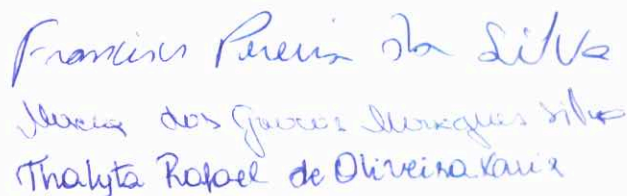 Francisco Pereira da Silva
Maria das Graças Marques Silva
Thalyta Rafael de Oliveira